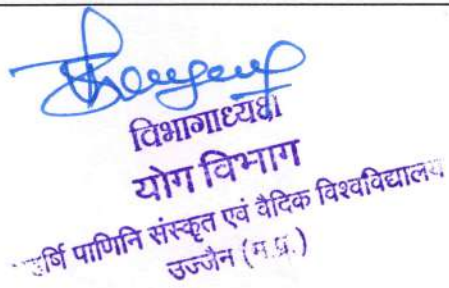 विभागाध्यक्ष
योग विभाग
महर्षि पाणिनि संस्कृत एवं वैदिक विश्वविद्यालय
उज्जैन (म.प्र.)